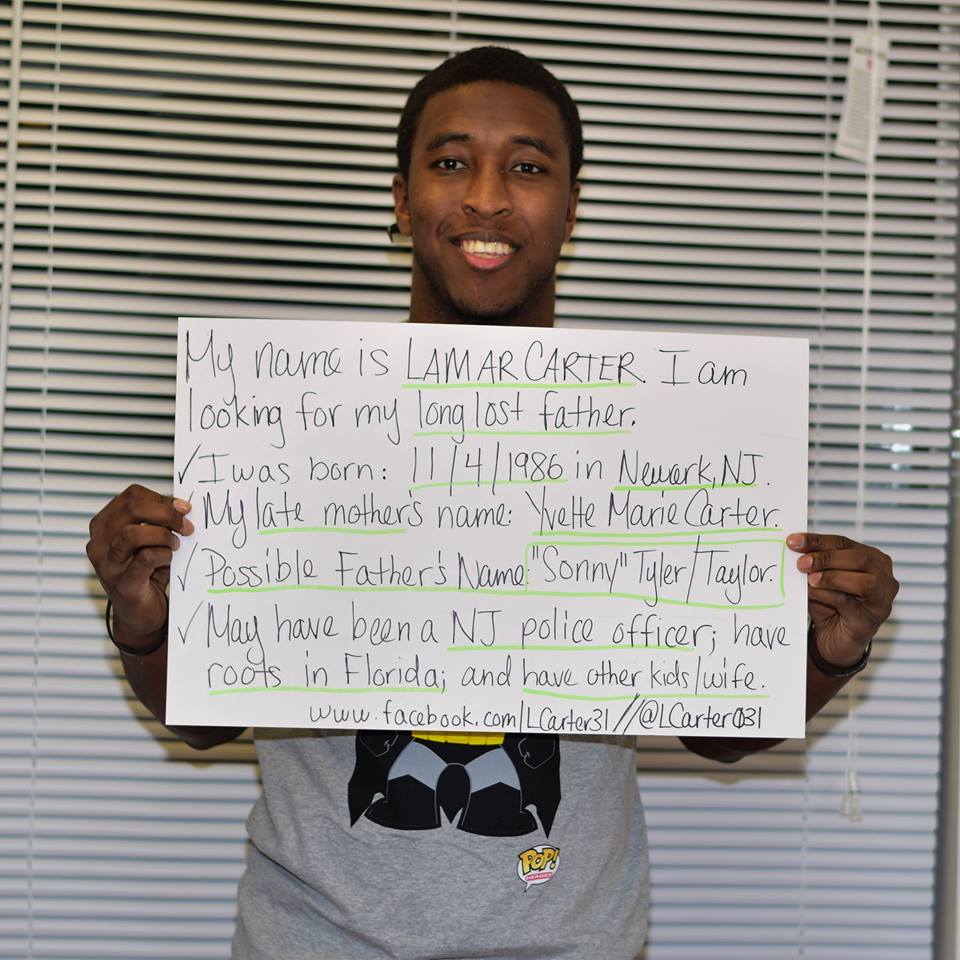 My name is LAMAR CARTER. I am
looking for my long lost father.
✓ I was born: 11/4/1986 in Newark, NJ.
✓ My late mother's name: Yvette Marie Carter.
✓ Possible Father's Name: "Sonny" Tyler/Taylor.
✓ May have been a NJ police officer; have
roots in Florida; and have other kids/wife.
www.facebook.com/LCarter31//@LCarter031
POP!
HEROES